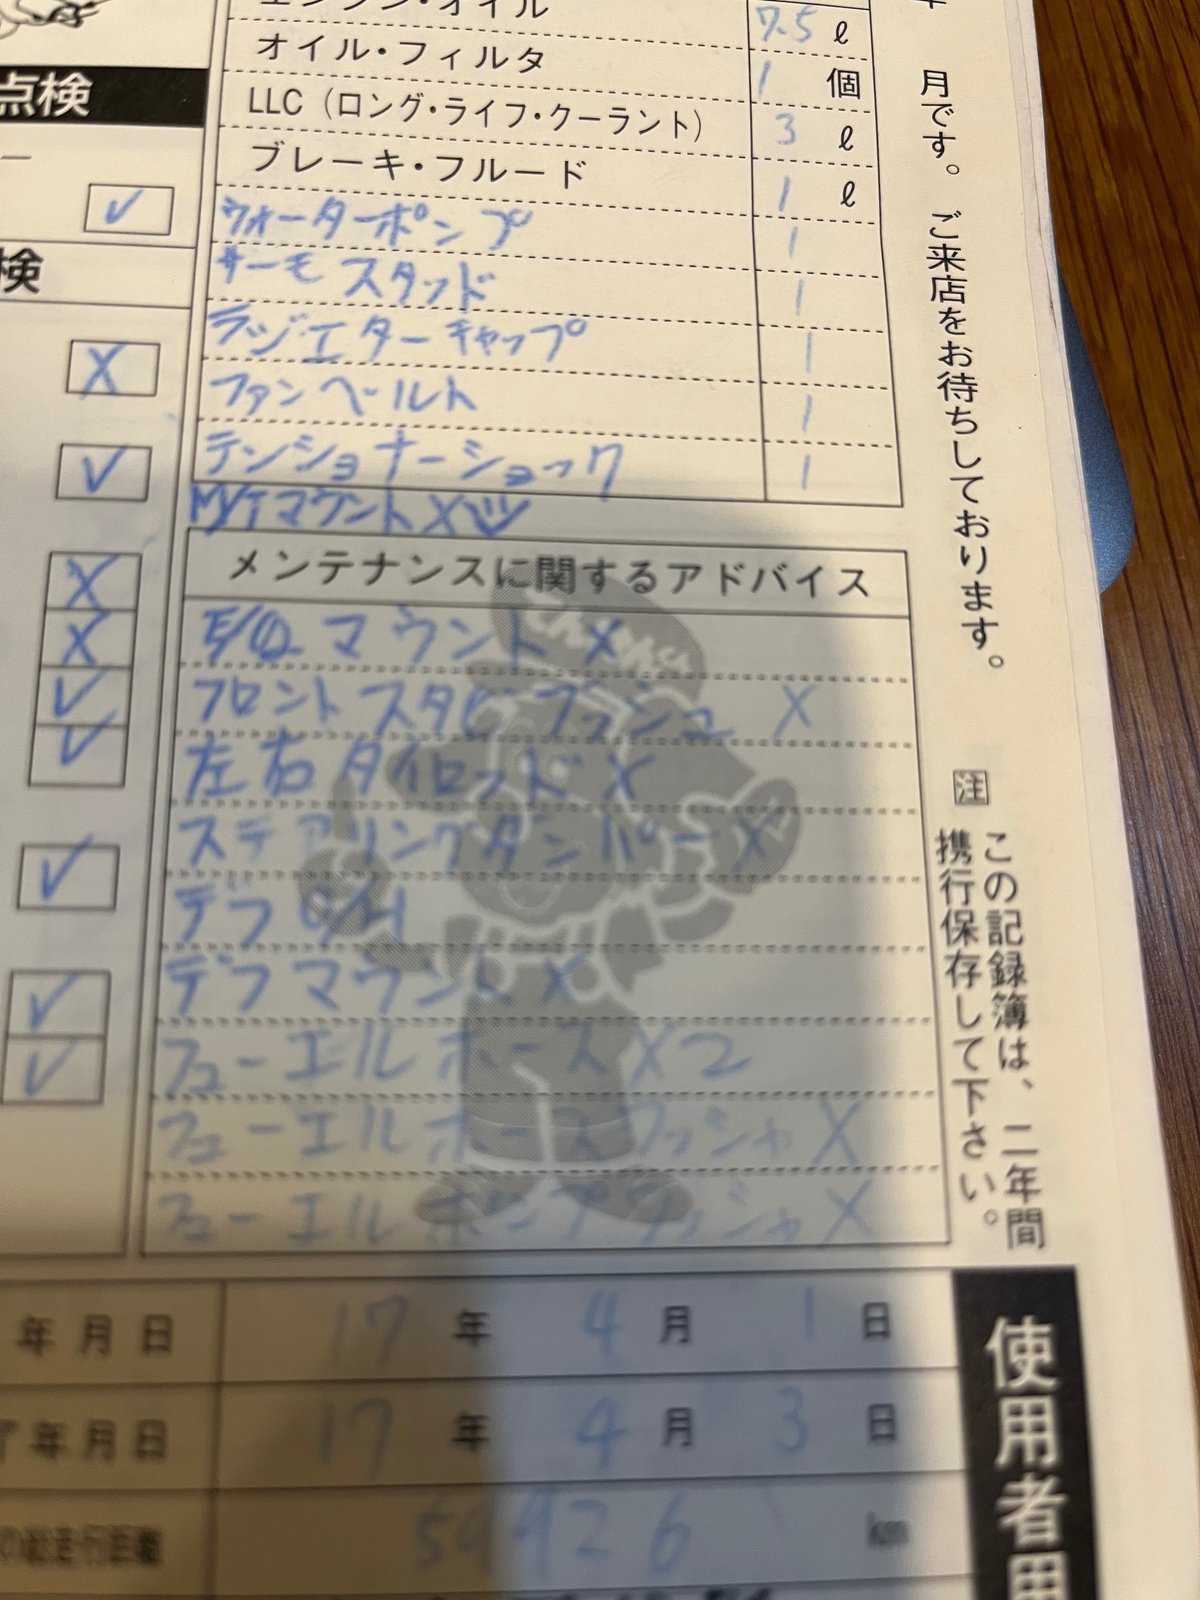 エンジン・オイル 7.5 ℓ
オイル・フィルタ 1 個
LLC（ロング・ライフ・クーラント） 3 ℓ
ブレーキ・フルード 1 ℓ
ウォーターポンプ 1
サーモスタッド 1
ラジエターキャップ 1
ファンベールト 1
テンショナーショック 1
M/Tマウント X
メンテナンスに関するアドバイス
E/Gマウント X
フロントスタビブッシュ X
左右タイロッド X
ステアリングダンパー X
デフ
デフマウント X
フューエルホース X 2
フューエルホースワッシャ X
フューエルポンプワッシャ X
点検
検
年月日 17 年 4 月 1 日
了年月日 17 年 4 月 3 日
の総走行距離 59926 km
月です。ご来店をお待ちしております。
注 この記録簿は、二年間
携行保存して下さい。
使用者用